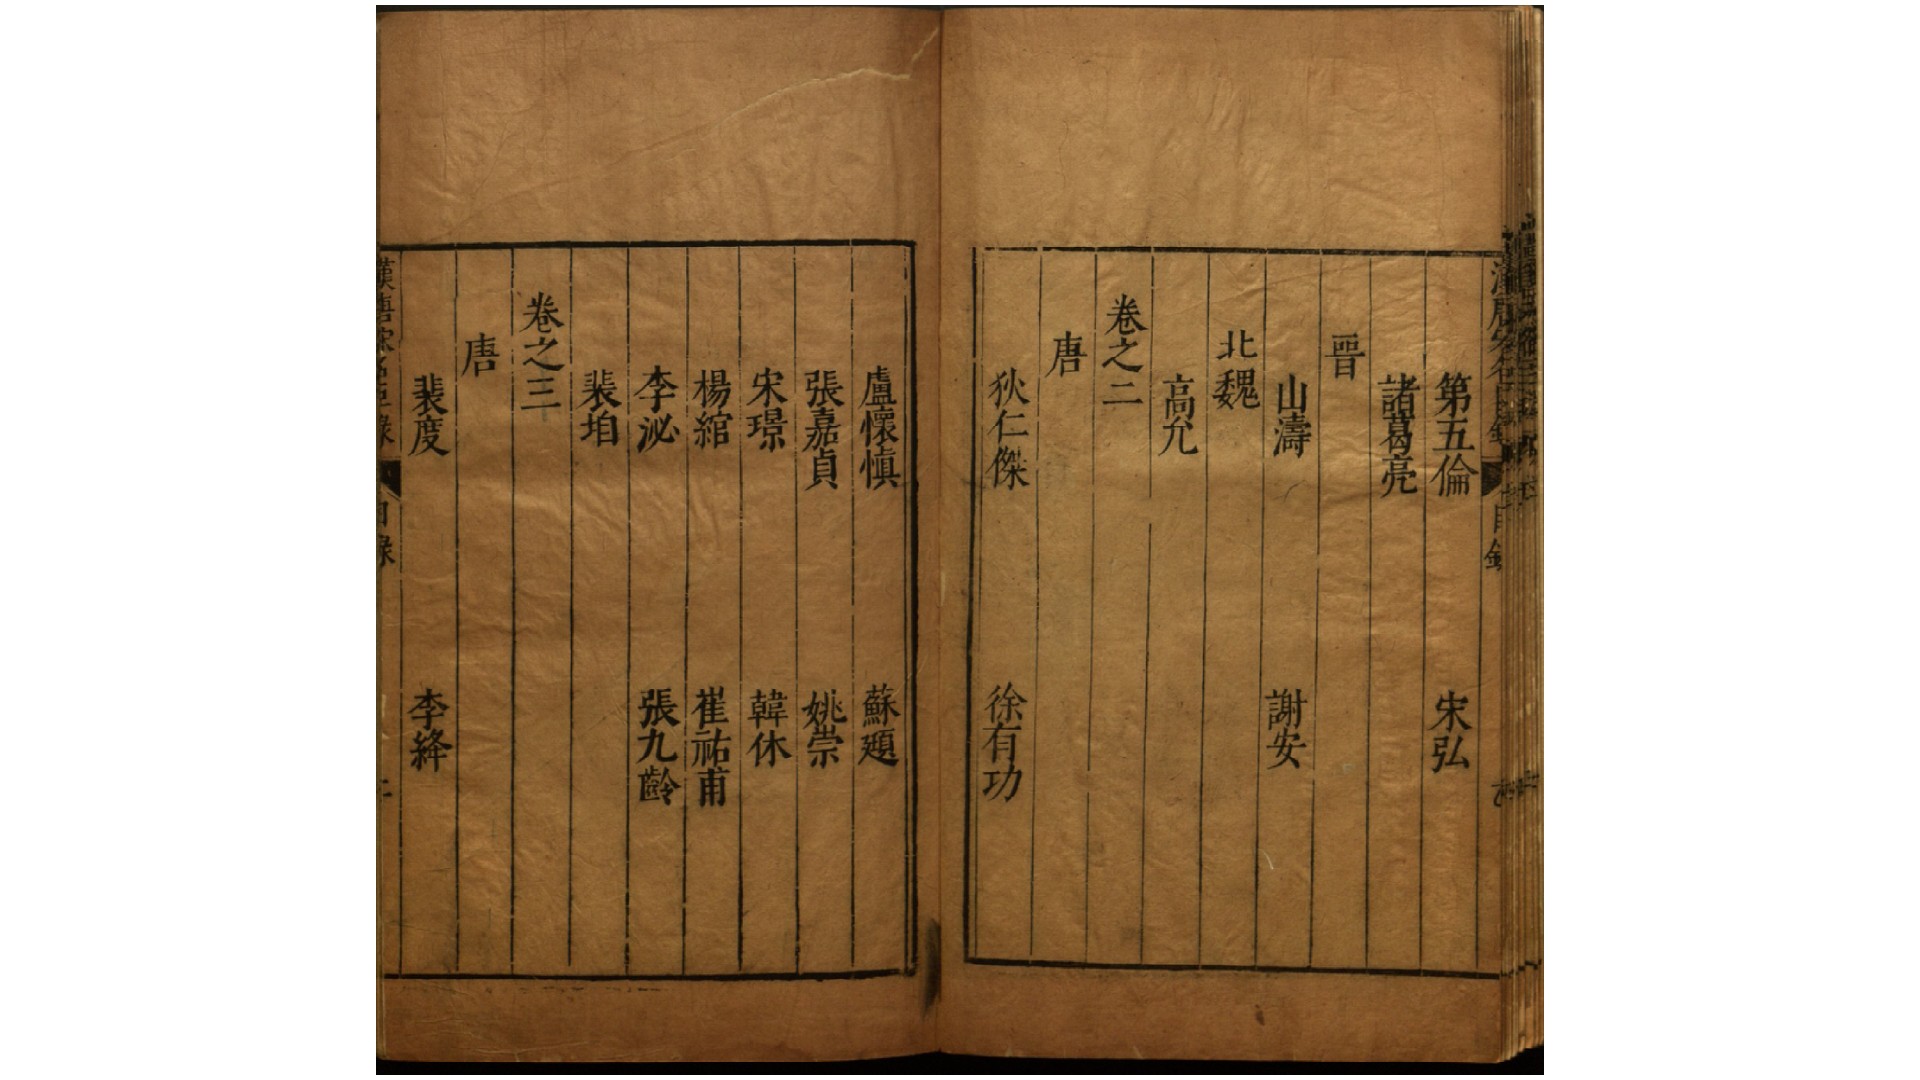 第五倫 宋弘
諸葛亮
晉
山濤 謝安
北魏
高允
卷之二
唐
狄仁傑 徐有功
盧懷慎 蘇頲
張嘉貞 姚崇
宋璟 韓休
楊綰 崔祐甫
李泌 張九齡
裴垍
卷之三
唐
裴度 李絳
漢唐宋名臣錄 目錄